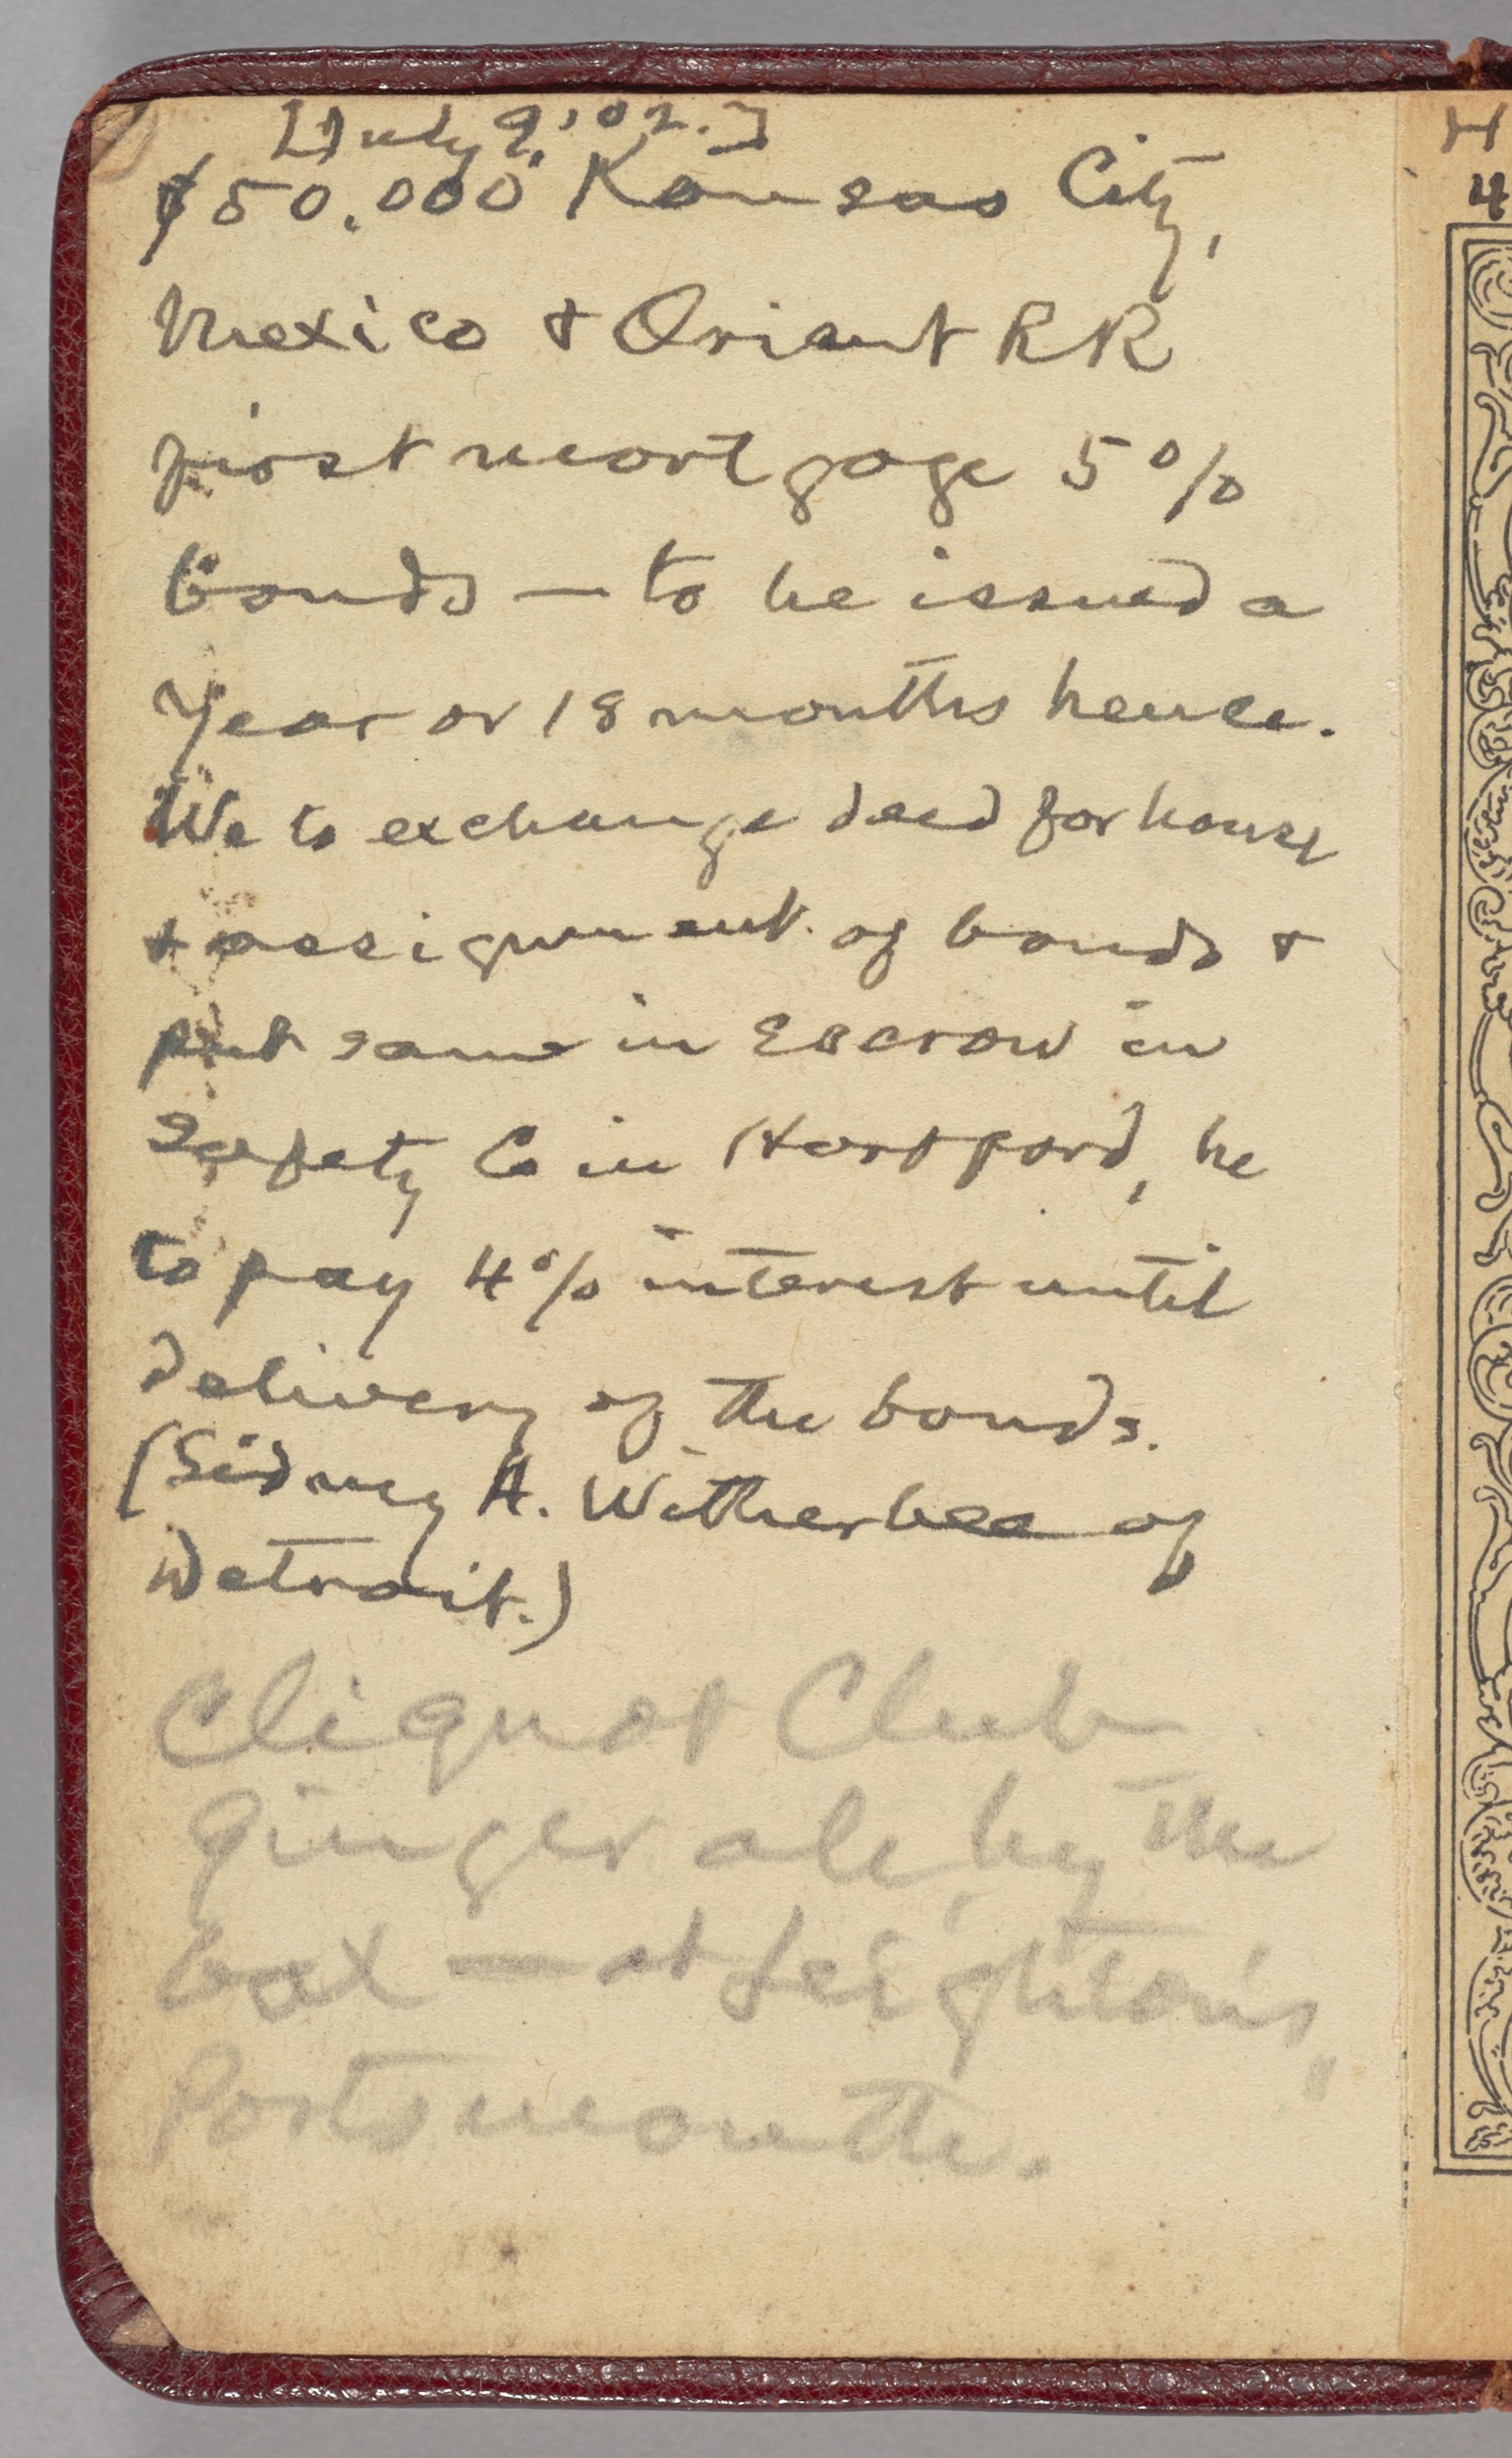 [July 9, '02.]
$50,000 Kansas City,
Mexico & Orient RR
first mortgage 5%
bonds — to be issued a
year or 18 months hence.
We to exchange deed for house
& assignment of bonds &
put same in Escrow in
Safety Co in Hartford, he
to pay 4% interest until
delivery of the bonds.
(Sidney A. Witherbee of
Detroit.)
Cliquot Club
ginger ale, by the
box — at Leighton's,
Portsmouth.
H
4